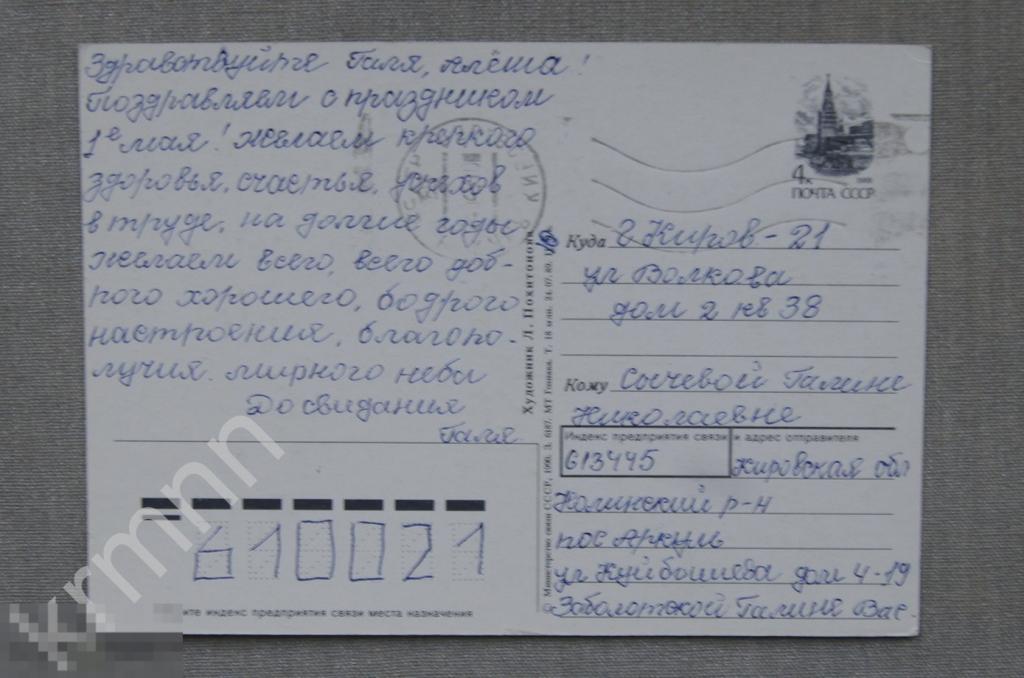 Здравствуйте Галя, Алёша!
Поздравляем с праздником
1е мая! желаем крепкого
здоровья, счастья, успехов
в труде, на долгие годы
желаем всего, всего доб-
рого хорошего, бодрого
настроения, благопо-
лучия. мирного неба
До свидания
Галя.
610021
ите индекс предприятия связи места назначения
Художник Л. Похитонова
© Министерство связи СССР, 1990. З. 6187. МТ Гознака. Т. 18 млн. 24.07.89.
4к
ПОЧТА СССР
Куда г Киров - 21
ул Волкова
дом 2 кв 38
Кому Сычевой Галине
Николаевне
Индекс предприятия связи и адрес отправителя
613445 Кировская обл
Нолинский р-н
пос Аркуль
ул Куйбышева дом 4-19
Заболотской Галине Вас.
krmnn